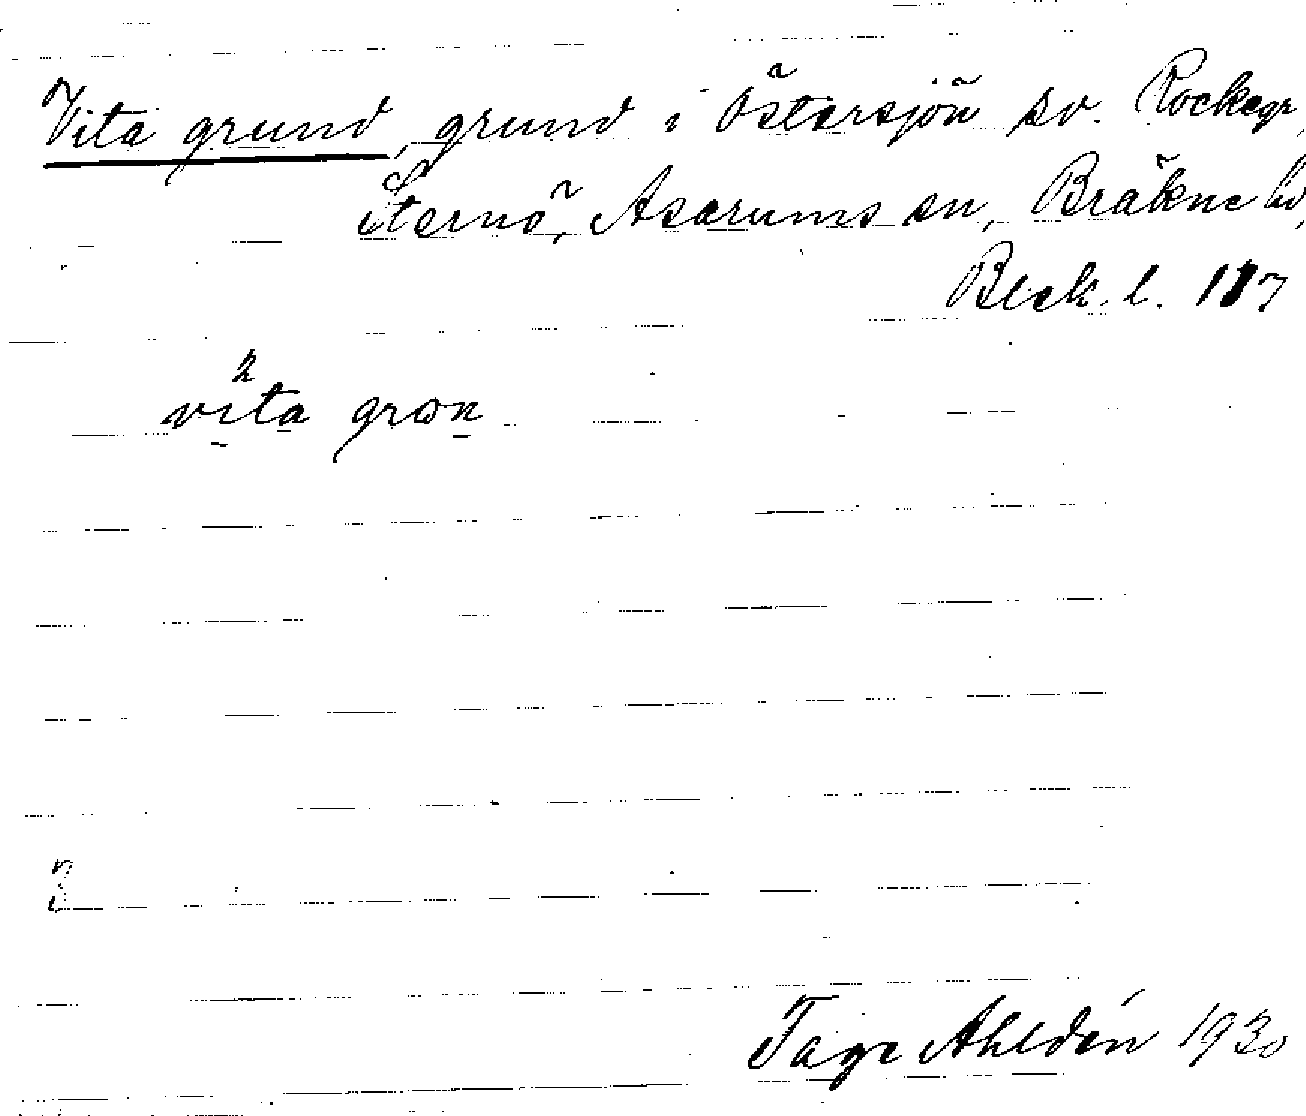 Vita grund, grund i Östersjön sv. Rockegr,
Sternö, Asarums sn, Bräkne hd,
Blek. l. 117
vita gron
Tage Ahldén 1930